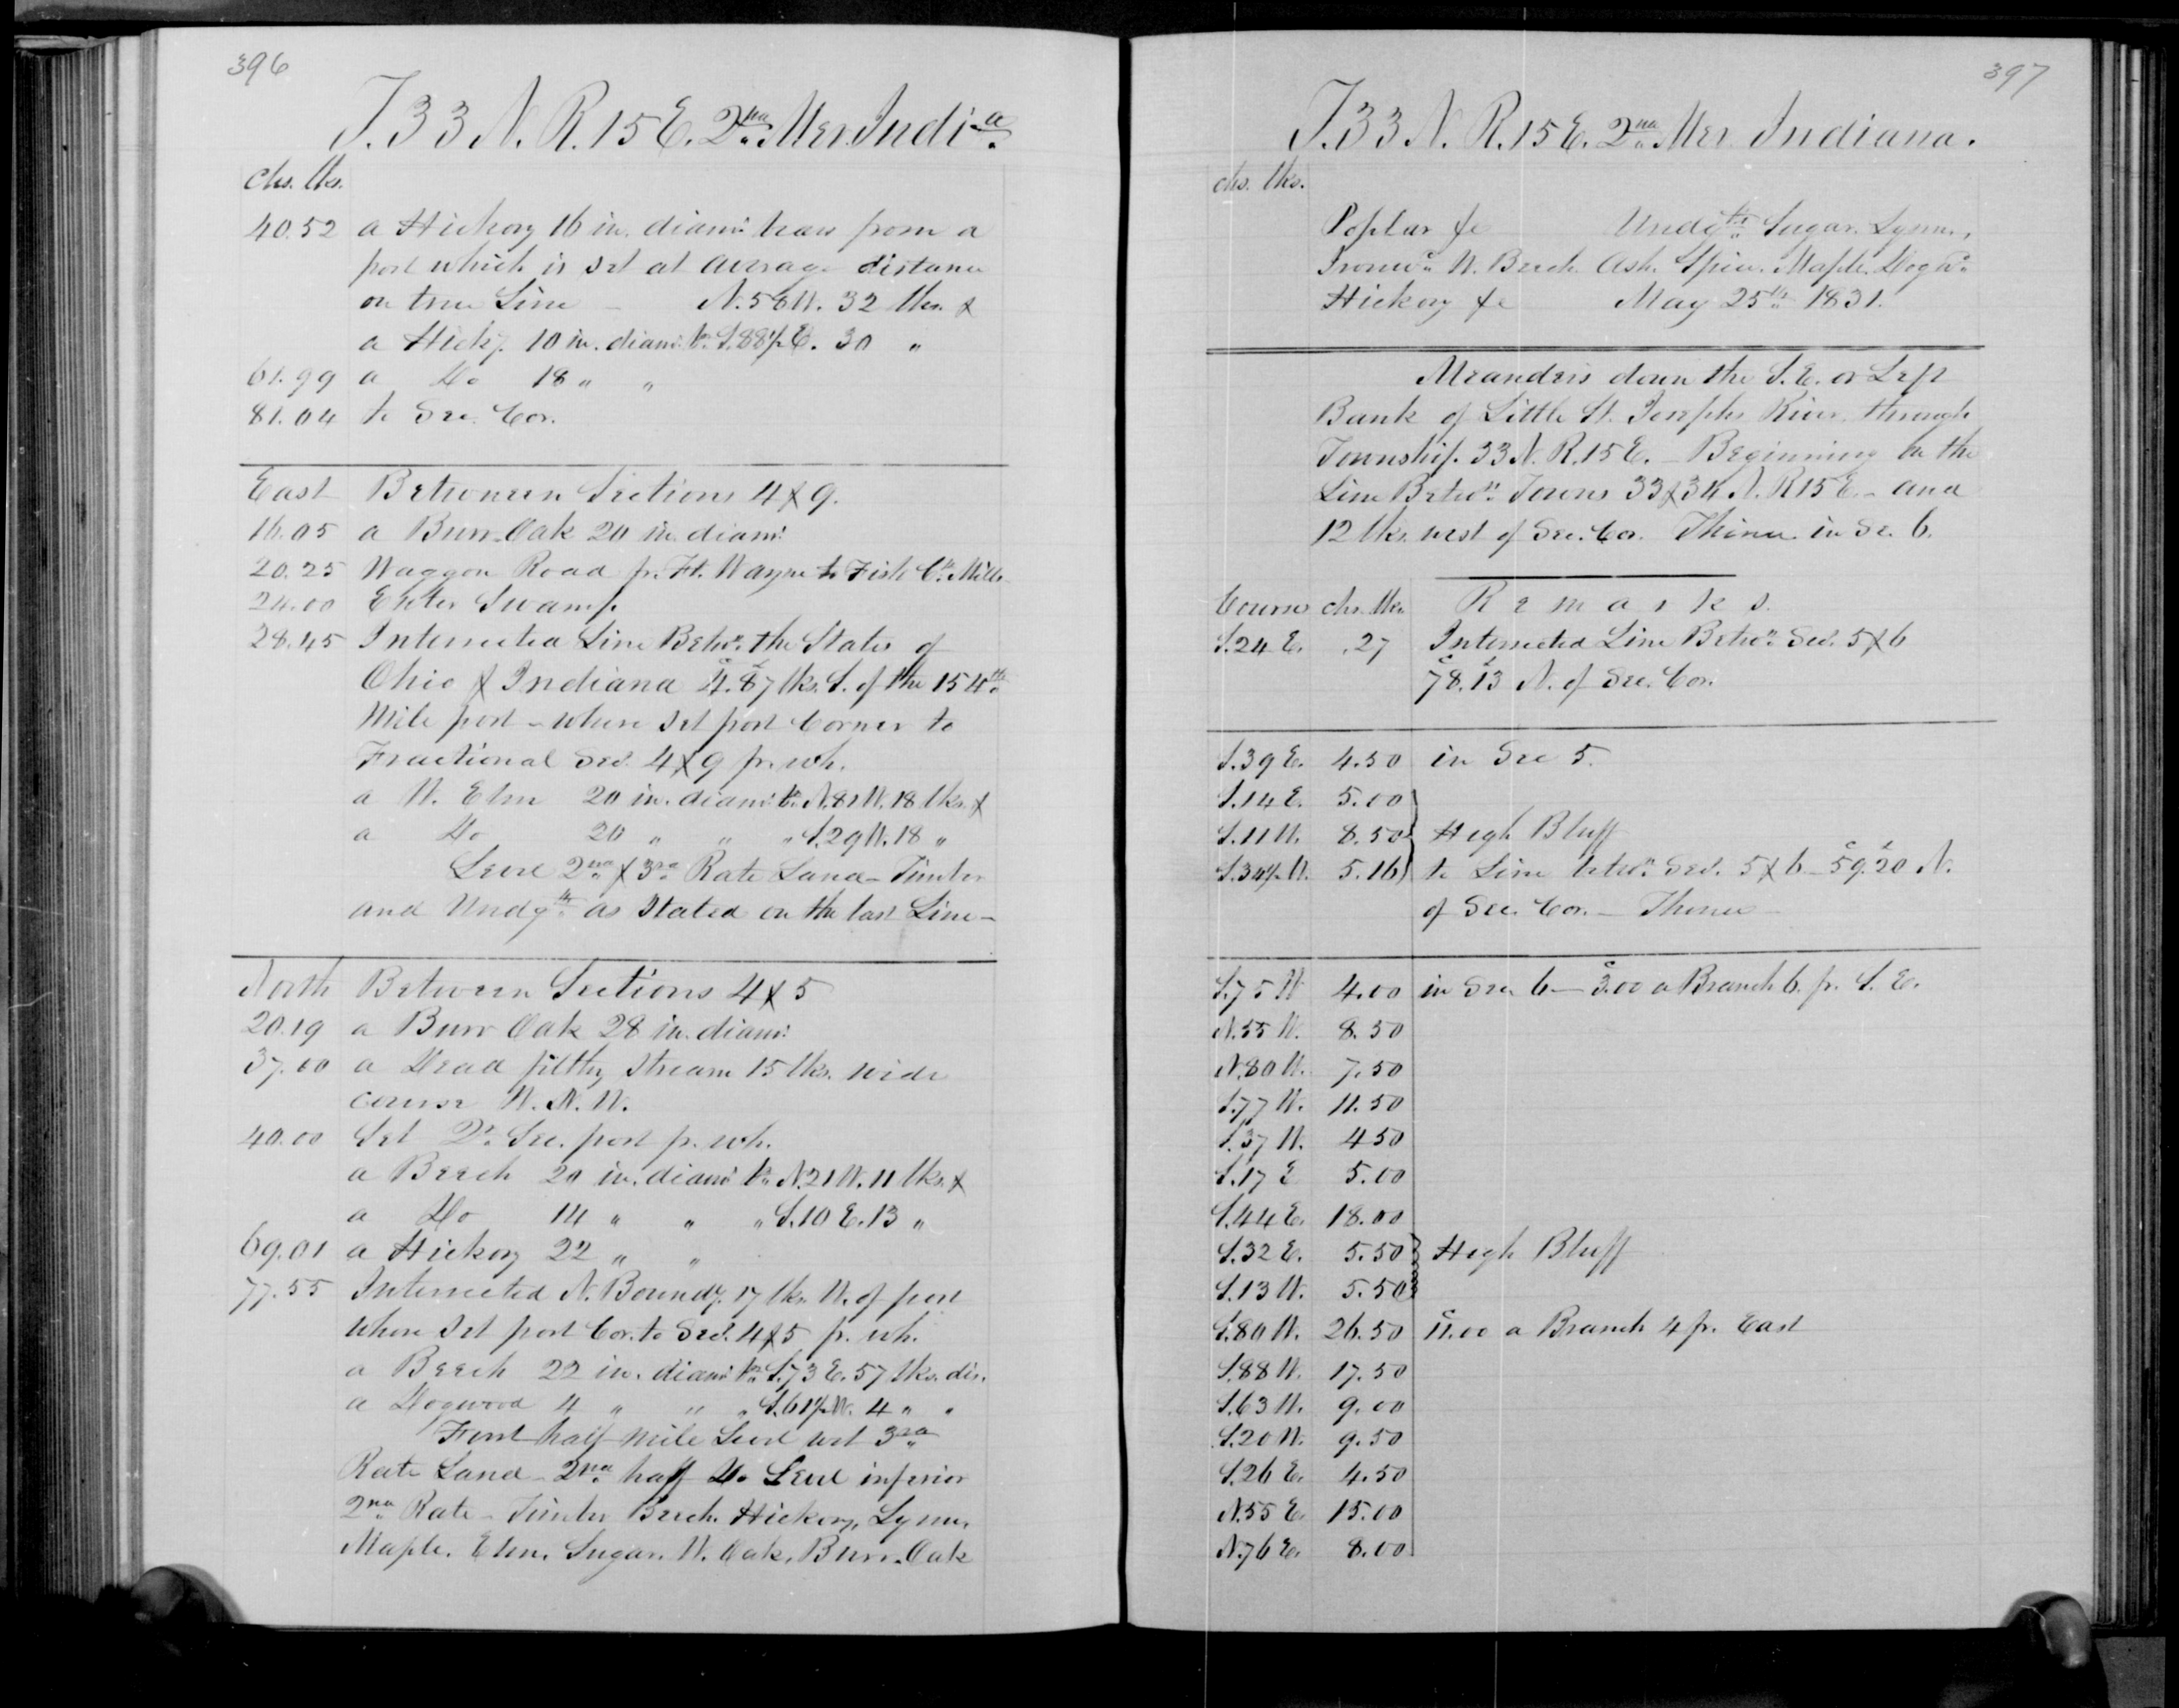 396
T. 33 N. R. 15 E. 2nd Mer. Indi-a
chs. lks.
40.52 a Hickory 16 in. diamr. bears from a
post which is set at average distance
on true Line – N. 56 W. 32 lks. &
a Hicky. 10 in. diamr. br. S. 88½ E. 30 "
61.99 a Do 18 " "
81.04 to Sec. Cor.
East Between Sections 4 & 9.
16.05 a Burr Oak 20 in. diamr.
20.25 Waggon Road fr. Ft. Wayne to Fish Ck. Mills
24.00 Enter Swamp
28.45 Intersected Line Betwn. the States of
Ohio & Indiana 4.87 lks. S. of the 154th
Mile post – where set post Corner to
Fractional Secs. 4 & 9 fr. wh.
a W. Elm 20 in. diamr. br. N. 81 W. 18 lks. &
a Do 20 " " " S. 29 W. 18 "
Level 2nd & 3rd Rate Land – Timber
and Undgth. as Stated on the last Line –
North Between Sections 4 & 5
20.19 a Burr Oak 28 in. diamr.
37.00 a Dead filthy stream 15 lks. wide
course W. N. W.
40.00 Set Qr. Sec. post fr. wh.
a Beech 20 in. diamr. br. N. 21 W. 11 lks. &
a Do 14 " " " S. 10 E. 13 "
69.01 a Hickory 22 " "
77.55 Intersected N. Boundy. 17 lks. W. of post
where set post Cor. to Secs. 4 & 5 fr. wh.
a Beech 22 in. diamr. br. S. 73 E. 57 lks. dis.
a Dogwood 4 " " " S. 61½ W. 4 " "
First half mile Level wet 3rd
Rate Land – 2nd half Do Level inferior
2nd Rate – Timber Beech. Hickory, Lynn,
Maple. Elm. Sugar. W. Oak. Burr. Oak
397
T. 33 N. R. 15 E. 2nd Mer. Indiana.
chs. lks.
Poplar &c Undgth. Sugar. Lynn,
Ironwd. W. Beech. Ash. Spice. Maple. Dogwd.
Hickory &c May 25th 1831.
Meanders down the S. E. or Left
Bank of Little St. Josephs River, through
Township 33 N. R. 15 E. – Beginning on the
Line Betwn. Towns 33 & 34 N. R 15 E. – and
12 lks. west of Sec. Cor. Thence in Se. 6.
Course chs. lks. Remarks.
S. 24 E. .27 Intersected Line Betwn. Secs. 5 & 6
78.13 N. of Sec. Cor.
S. 39 E. 4.50 in Sec 5.
S. 14 E. 5.00
S. 11 W. 8.50 High Bluff
S. 34½ W. 5.16 to Line betwn. Secs. 5 & 6 – 59.20 N.
of Sec. Cor. – Thence –
S. 75 W 4.00 in Sec. 6 – 3.00 a Branch 6. fr. S. E.
N. 55 W. 8.50
N. 80 W. 7.50
S. 77 W. 11.50
S. 37 W. 4 50
S. 17 E 5.00
S. 44 E. 18.00
S. 32 E. 5.50 High Bluff
S. 13 W. 5.50
S. 80 W. 26.50 11.00 a Branch 4 fr. East
S. 88 W. 17.50
S. 63 W. 9.00
S. 20 W. 9.50
S. 26 E. 4.50
N. 55 E. 15.00
N. 76 E. 8.00